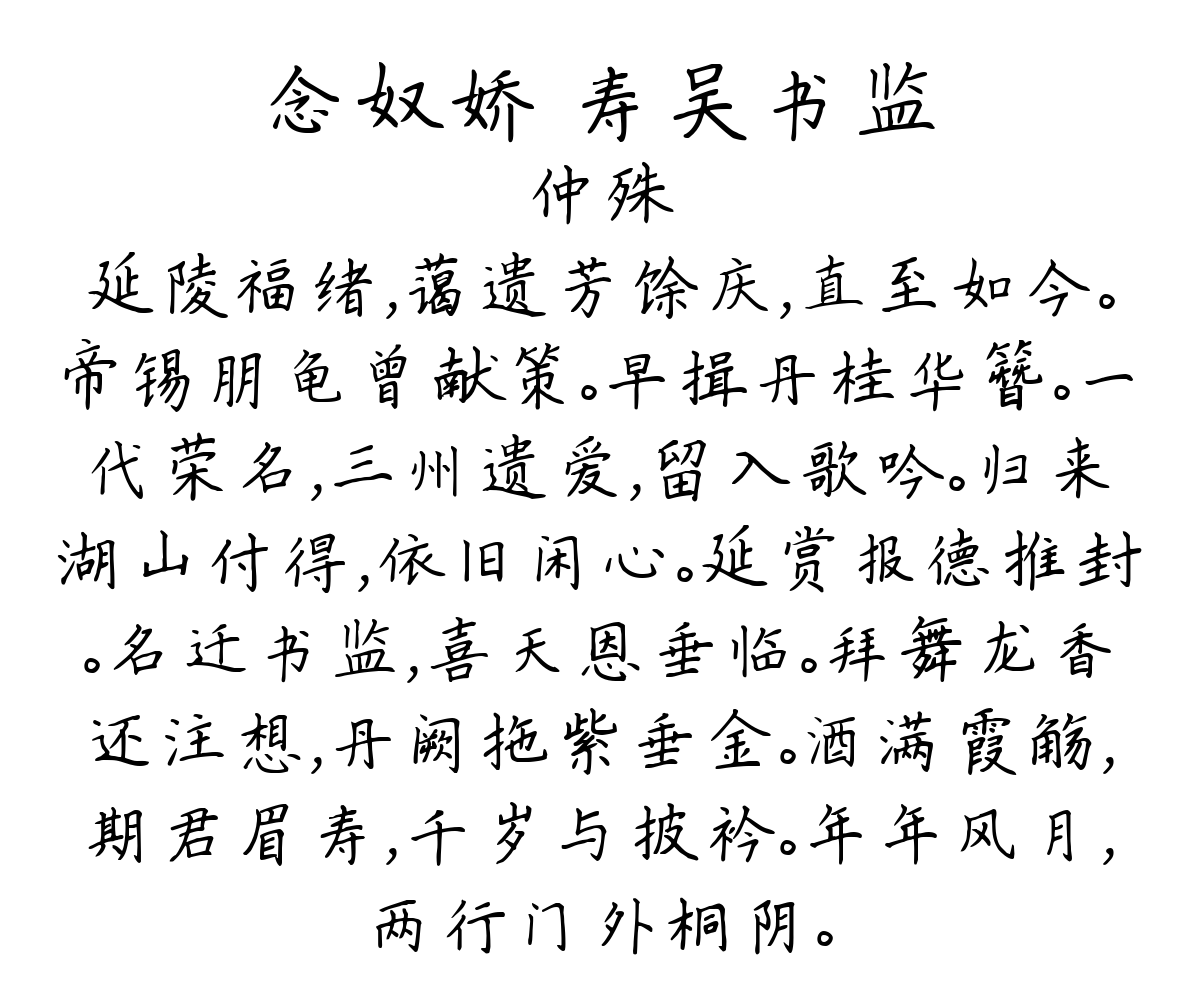 念奴娇 寿吴书监
仲殊
延陵福绪,蔼遗芳馀庆,直至如今。
帝锡朋龟曾献策。早揖丹桂华簪。一
代荣名,三州遗爱,留入歌吟。归来
湖山付得,依旧闲心。延赏报德推封
。名迁书监,喜天恩垂临。拜舞龙香
还注想,丹阙拖紫垂金。酒满霞觞,
期君眉寿,千岁与披衿。年年风月,
两行门外桐阴。